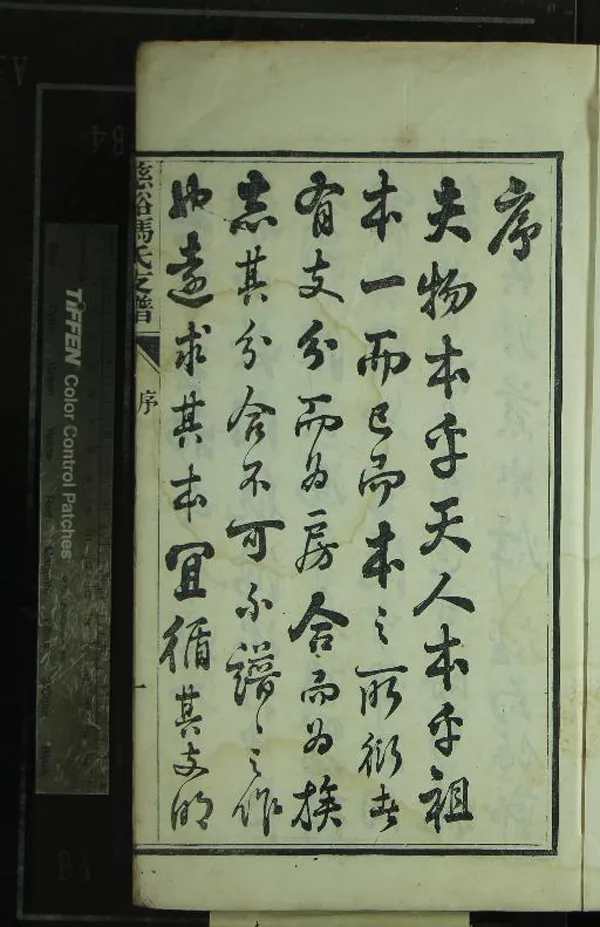 序
夫物本乎天人本乎祖
本一而已而本之所衍者
有支分而為房合而為族
其分合不可不譜譜之作
遠求其本宜循其支明
慈谿馮氏支譜
序
一
TIFFEN Color Control Patches